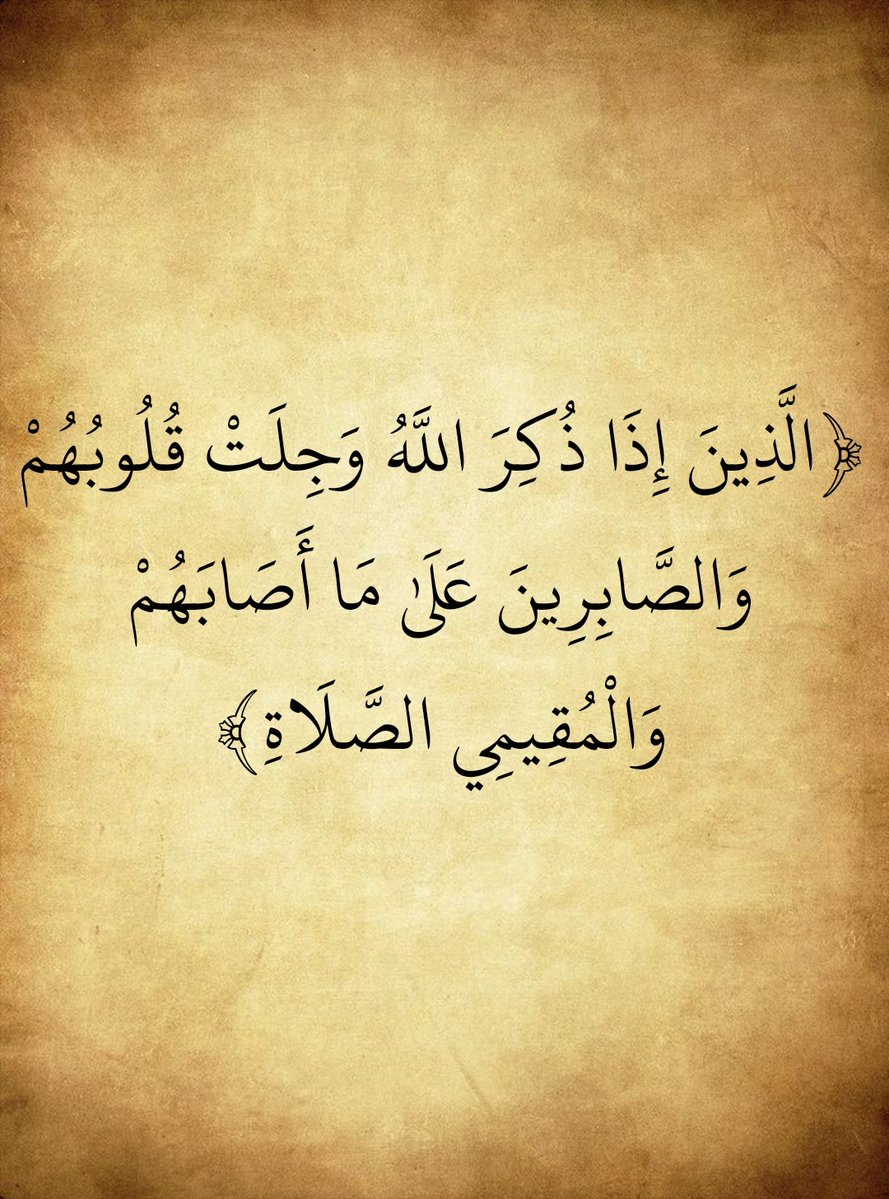 ﴿الَّذِينَ إِذَا ذُكِرَ اللَّهُ وَجِلَتْ قُلُوبُهُمْ
وَالصَّابِرِينَ عَلَىٰ مَا أَصَابَهُمْ
وَالْمُقِيمِي الصَّلَاةِ﴾